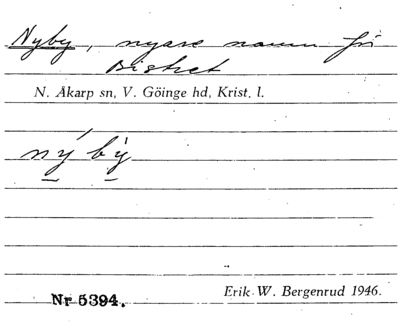 Nyby, nyare namn på
Bistret
N. Åkarp sn, V. Göinge hd, Krist. l.
ný bỳ
Nr 5394.
Erik W. Bergenrud 1946.